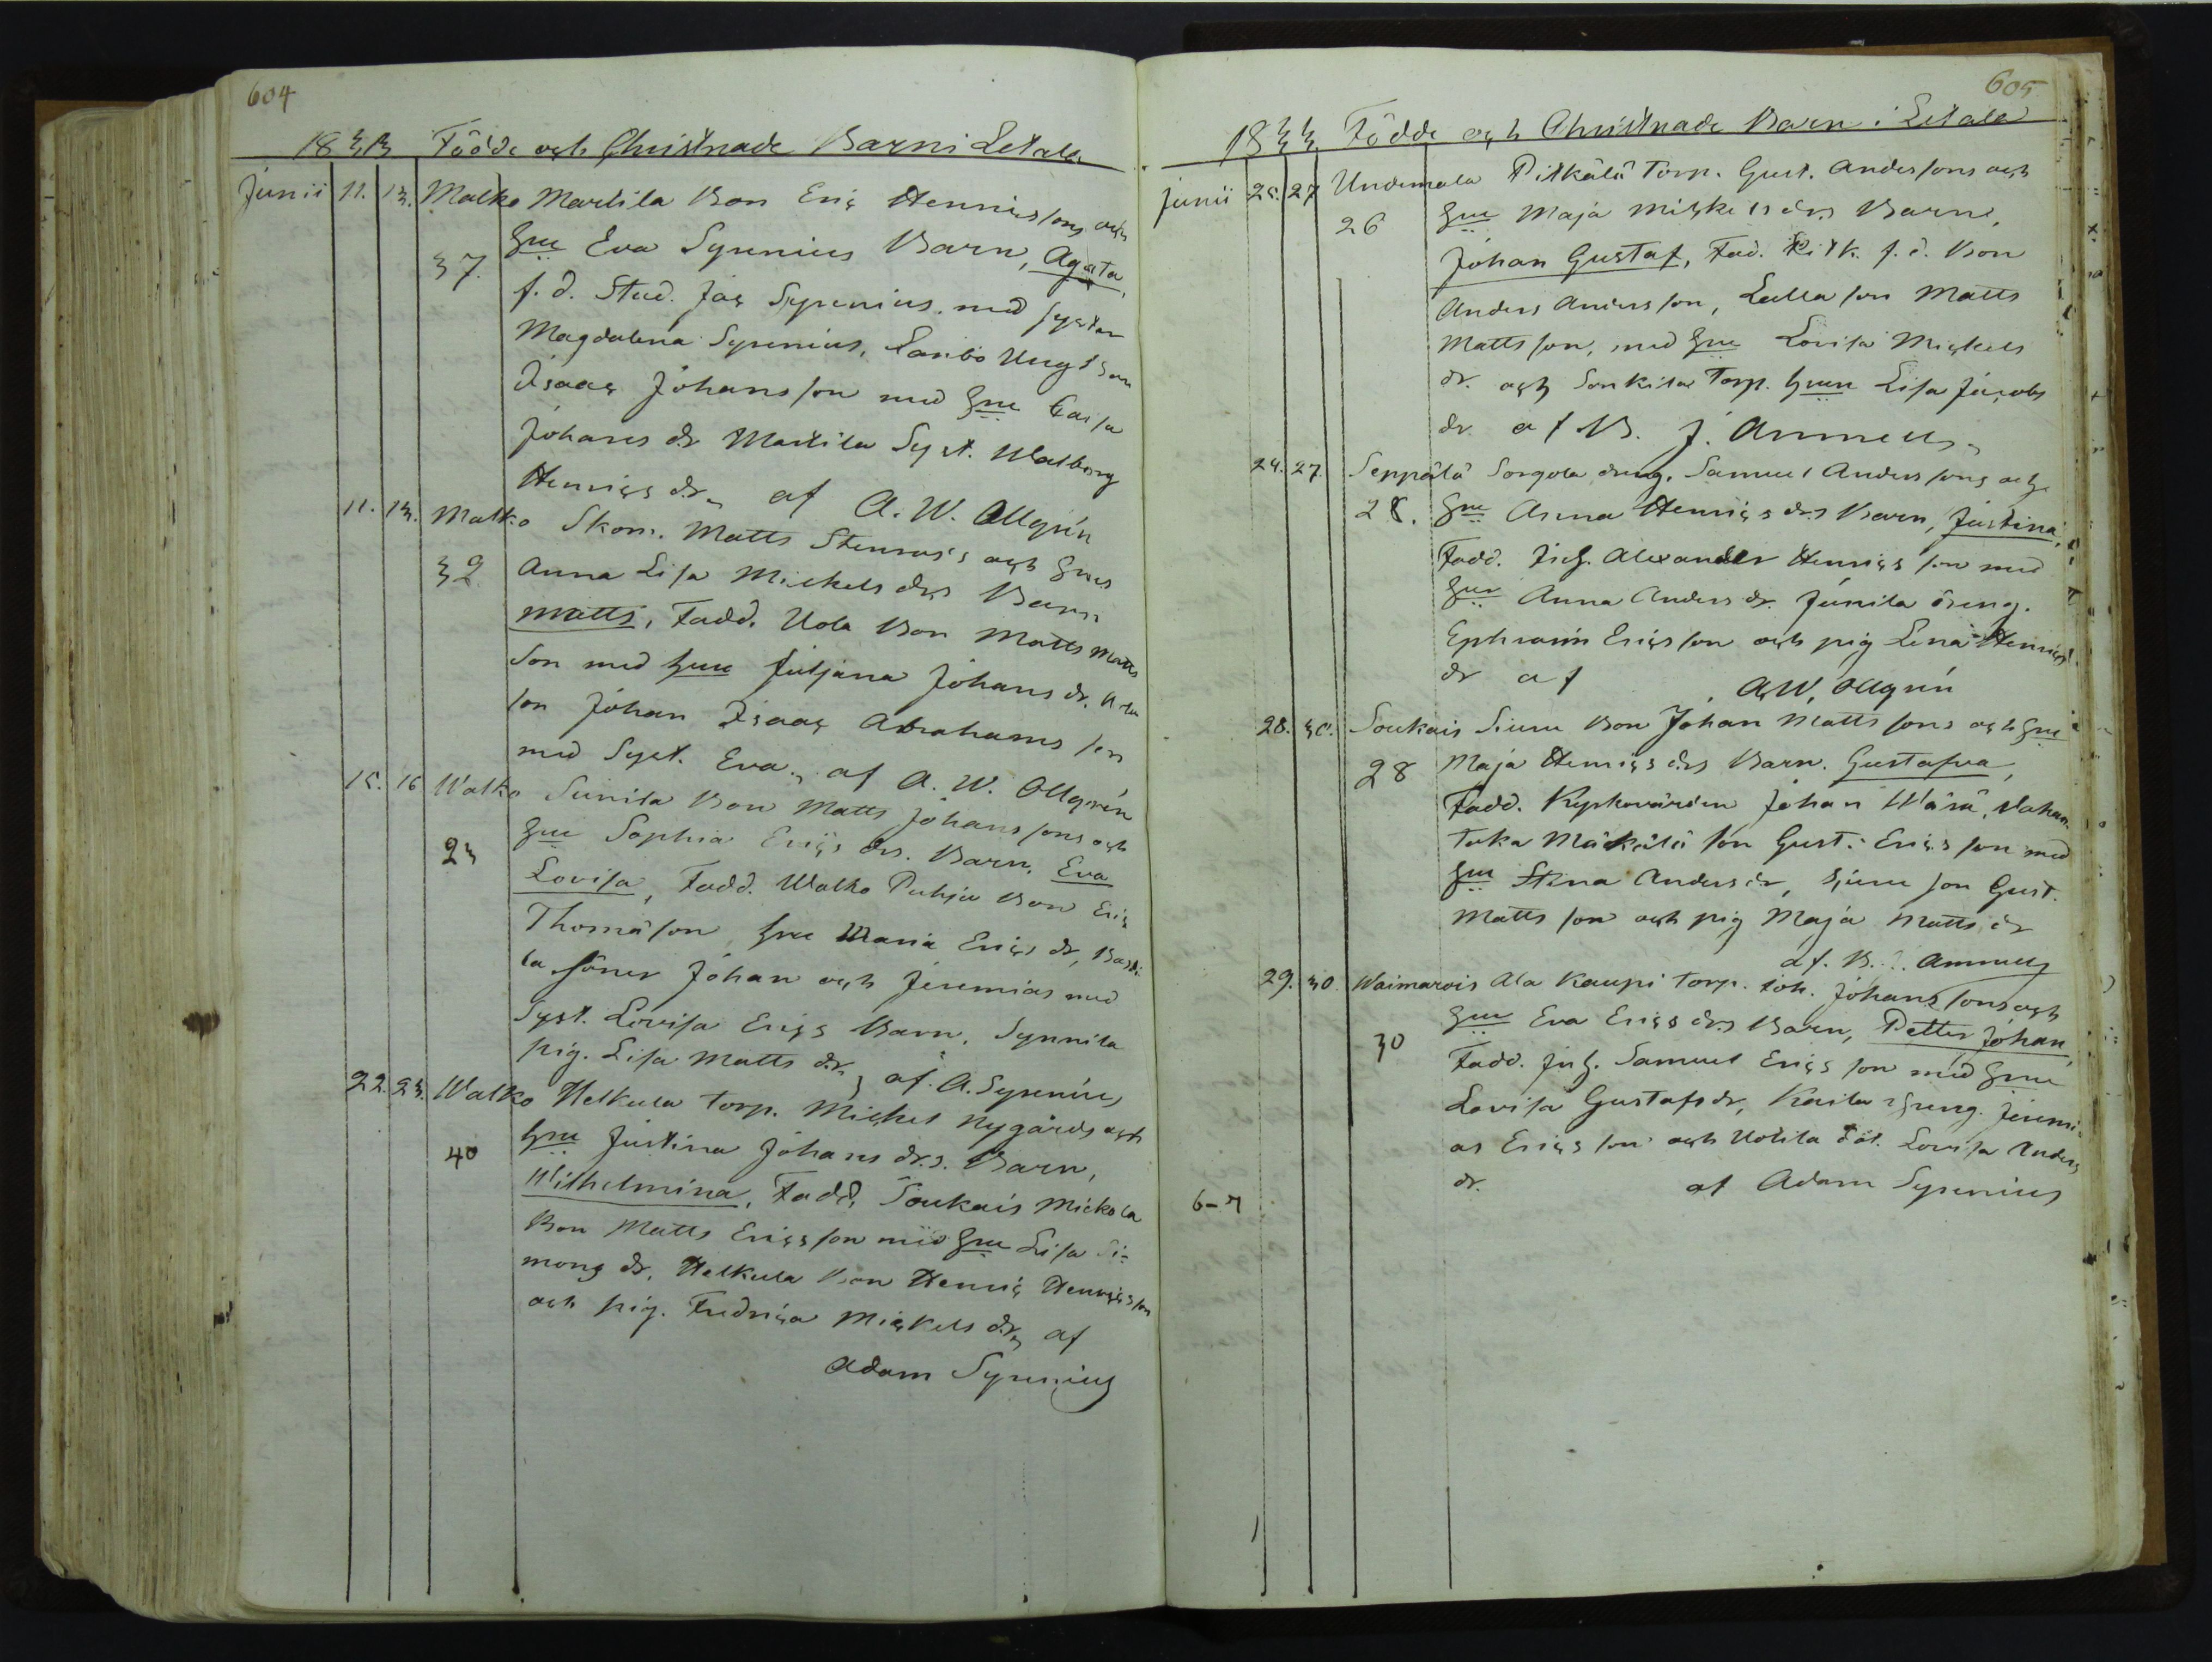 604
1833 Födde och Christnade Barn i Letala
Junii 11. 13. Malko Martila Bon Eric Henricssons och
37. Hru Eva Syrenius Barn, Agata,
f. d. Stud. Jac Syrenius med syster
Magdalena Syrenius, Ungkarl
Isaac Johansson med Hru Caisa
Johans dr Martila Syst. Walborg
Henrics dr, af A. W. Allgrén
11. 13. Malko Skom. Matts Stenroos's och Hrus
32 Anna Lisa Mickels drs Barn
Matts, Fadd. Uola Bon Matts Matts
son med Hru Juljana Johans dr.
son Johan Isaac Abrahams son
med Syst. Eva, af A. W. Allgrén
15. 16 Walko Sunila Bon Matts Johanssons och
23 Hru Sophia Erics drs. Barn, Eva
Lovisa, Fadd. Walko Puhja Bon Eric
Thomason Hru Maria Erics dr,
la söner Johan och Jeremias med
Syst. Lovisa Erics Barn. Synnila
pig. Lisa Matts dr, af A. Syrenius
22. 23. Walko Helkula torp. Michel Nygårds och
40 Hru Justina Johans drs. Barn,
Wilhelmina, Fadd, Soukais Mickola
Bon Matts Ericsson med Hru Lisa Si-
mons dr, Helkula Bon Henric Henricsson
och pig. Fredrica Mickels dr, af
Adam Syrenius
605
1833 Födde och Christnade Barn i Letala
Junii 25. 27 Undemala Pitkälä Torp. Gust. Anderssons och
26 Hru Maja Mickels drs Barn,
Johan Gustaf, Fad. Pitk. f. d. Bon
Anders Andersson, Lalla son Matts
Mattsson, med Hru Lovisa Mickels
dr. och Torp. Hrun Lisa Jacobs
dr af B. J. Ammell
24. 27. Seppälä Sorgola dreng. Samuel Anderssons och
28. Hru Anna Henrics drs Barn, Justina,
Fadd. Alexander Henrics son med
Hru Anna Anders dr. Junila dreng.
Ephraim Ericsson och pig Lena Henrics
dr af A. W. Allgrén
28. 30. Soukais Siuru Bon Johan Mattssons och Hru
28 Maja Henrics drs Barn. Gustafva,
Fadd. Kyrkovärden Johan Wärä, Vahan-
taka Mäkälä son Gust. Erics son med
Hru Stina Anders dr, Sjuru son Gust.
Matts son och pig Maja Matts dr
af. B. J. Ammell
29. 30. Waimarois Ala Kaupi torp. Joh. Johanssons och
30 Hru Eva Erics drs Barn, Petter Johan,
Fadd. Samuel Erics son med Hru
Lovisa Gustafs dr, Kaila dreng. Jeremi-
as Erics son och Uotila dot. Lovisa Anders
dr. af Adam Syrenius
6-7